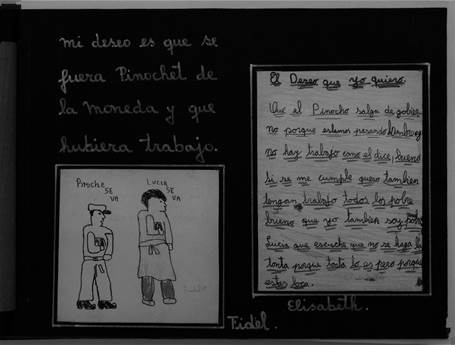 mi deseo es que se
fuera Pinochet de
la moneda y que
hubiera trabajo.
Pinoche SE VA
LUCIA SE VA
Fidel.
El Deseo que yo quiero
Que el Pinocho salga de gobier
no porque estamos pasando hambre y
no hay trabajo como el dice, bueno
si se me cumple quero tambien
tengan trabajo todos los pobre
brieno que yo tambien soy pobre
Lucia que escuche que no se haga la
tonta porque tonta lo es pero porque
esta loca.
Elisabeth.